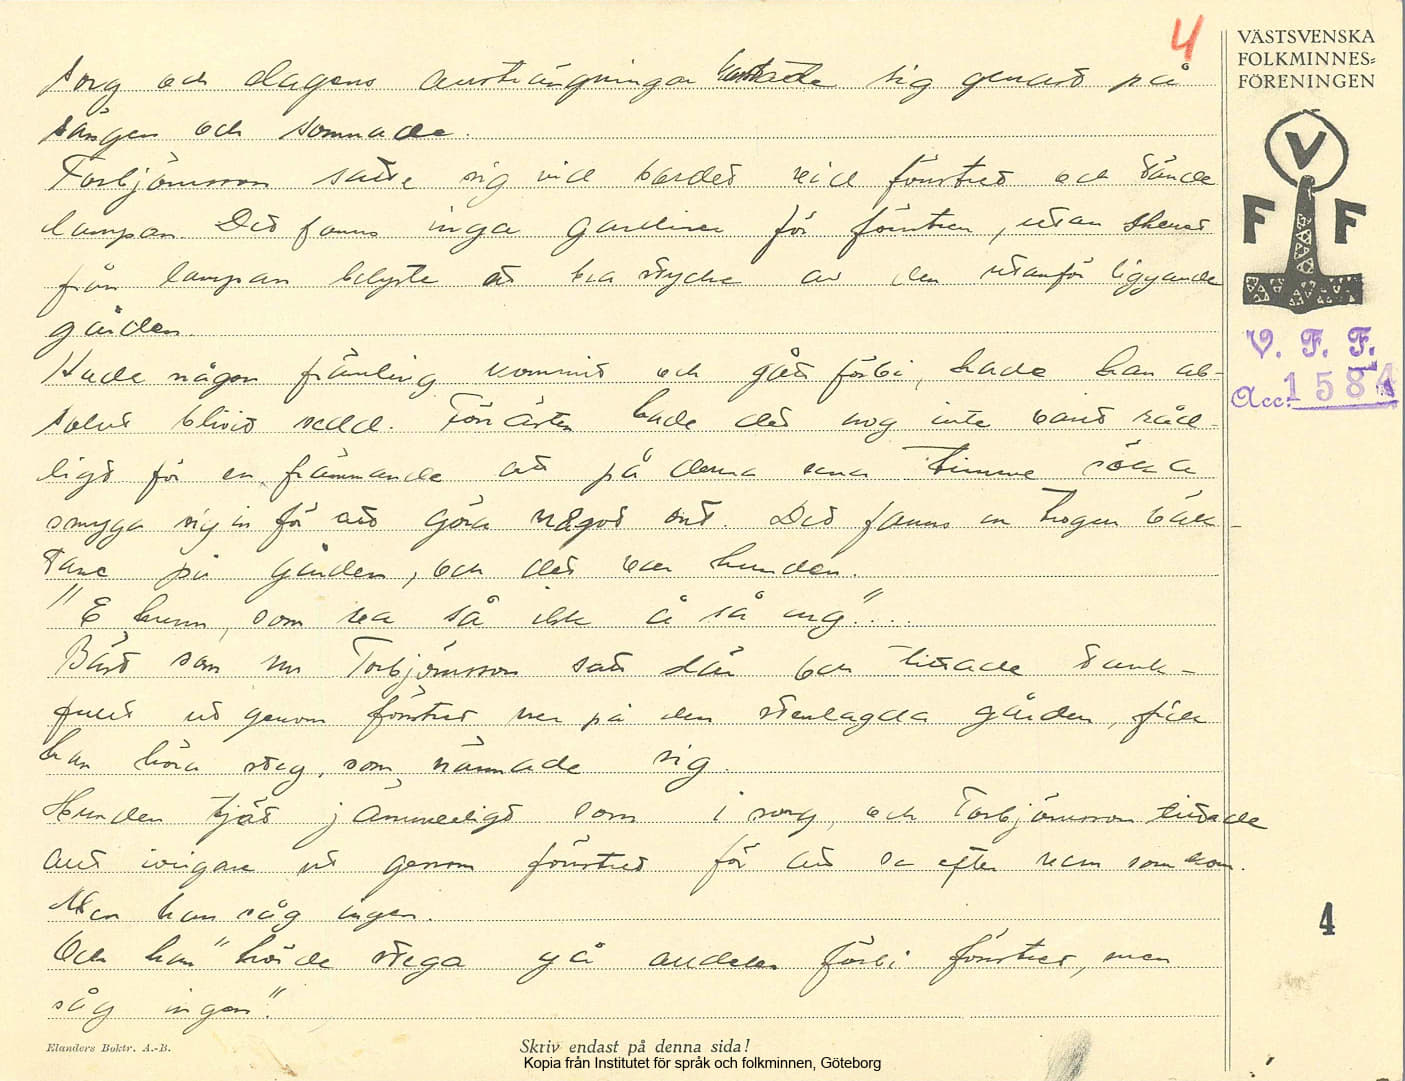 4
VÄSTSVENSKA
FOLKMINNES-
FÖRENINGEN
V
F F
V. F. F.
Acc: 1584
sorg och dagens ansträngningar kastade sig genast på
sängen och somnade.
Torbjörnsson satte sig vid bordet vid fönstret och tände
lampan. Det fanns inga gardiner för fönstren, utan skenet
från lampan belyste ett bra stycke av den utanför liggande
gården.
Hade någon främling kommit och gått förbi, hade han ab-
solut blivit sedd. Förresten hade det nog inte varit råd-
ligt för en främmande att på denna sena timme söka
smyga sig in för att göra något ont. Det fanns en trogen väk-
tare på gården, och det var hunden.
"E hunn, som va så ilsk å så arg"....
Bäst som nu Torbjörnsson satt där och tittade tank-
fullt ut genom fönstret ner på den stenlagda gården, fick
han höra steg, som närmade sig.
Hunden tjöt jämmerligt som i sorg, och Torbjörnsson tittade
allt ivrigare ut genom fönstret för att se efter vem som kom.
Men han såg ingen.
Och han "hörde stega gå alldeles förbi fönstret, men
såg ingen".
4
Elanders Boktr. A.-B.
Skriv endast på denna sida!
Kopia från Institutet för språk och folkminnen, Göteborg